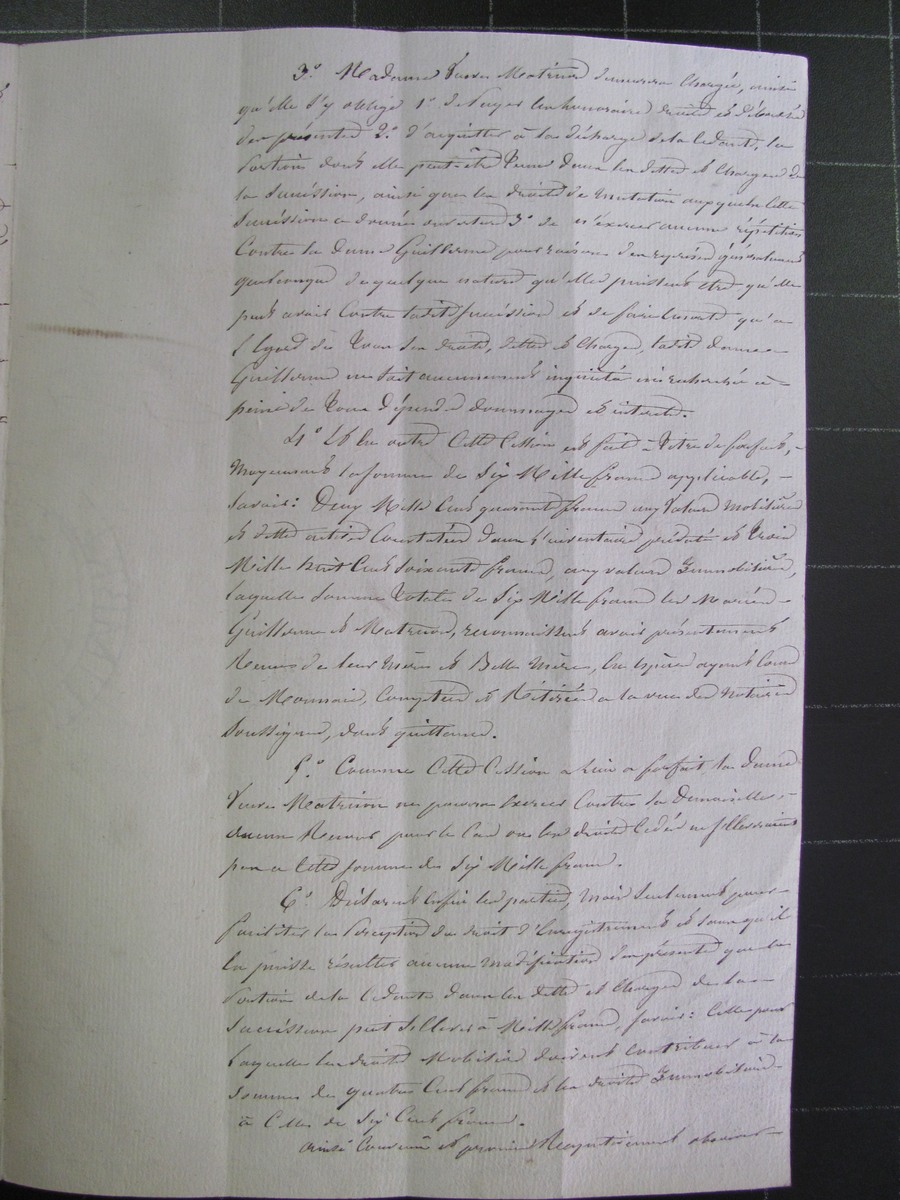 3.° Madame Veuve Matrion demeurera chargée, ainsi
qu'elle s'y oblige 1.° de payer les honoraires droits et déboursés
des présentes 2.° d'acquitter à la décharge de la cédante, la
portion dont elle peut être tenue dans les dettes et charges de
la succession, ainsi que les droits de mutation auxquels cette
succession a donné ouverture 3.° de n'exercer aucune répétition
contre la dame Guillerme pour raison des reprises généralement
quelconques de quelque nature qu'elles puissent être qu'elle
peut avoir contre ladite succession et de faire ensorte qu'à
l'égard de tous les droits, dettes et charges, ladite dame
Guillerme ne soit aucunement inquiétée ni recherchée à
peine de tous dépens dommages et intérêts.
4.° Et en outre cette cession est faite à titre de forfait,
moyennant la somme de Six Mille francs applicable,
savoir: Deux Mille Cent quarante francs aux valeurs mobilières
et dettes actives constatées dans l'inventaire prédaté et trois
Mille huit Cent soixante francs, aux valeurs Immobilières,
laquelle somme totale de Six Mille francs les mariés
Guillerme et Matrion, reconnaissent avoir présentement
reçue de leur mère et Belle mère, en espèces ayant cours
de monnaie, comptées et retirées à la vue des notaires
soussignés, dont quittance.
5.° Comme cette cession a lieu à forfait la dame
Veuve Matrion ne pourra exercer contre sa Demoiselle,
aucun recours pour le cas où les droits cédés ne s'élèveraient
pas à cette somme de Six Mille francs.
6.° Déclarent enfin les parties, mais seulement pour
faciliter la perception du droit d'Enregistrement et sans qu'il
en puisse résulter aucune modification des présentes que la
portion de la cédante dans les dettes et charges de la
succession peut s'élever à Mille francs, savoir: celle pour
laquelle les droits mobiliers doivent contribuer à la
somme de quatre Cent francs et les droits Immobiliers
à celle de Six Cent francs.
Ainsi convenu et promis Réquisitionnement